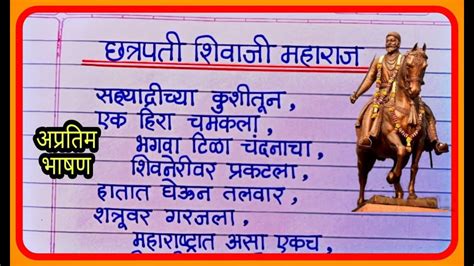 छत्रपती शिवाजी महाराज
सह्याद्रीच्या कुशीतून,
एक हिरा चमकला,
भगवा टिळा चंदनाचा,
शिवनेरीवर प्रकटला
हातात घेऊन तलवार,
शत्रूवर गरजला,
महाराष्ट्रात असा एकच,
अप्रतिम
भाषण